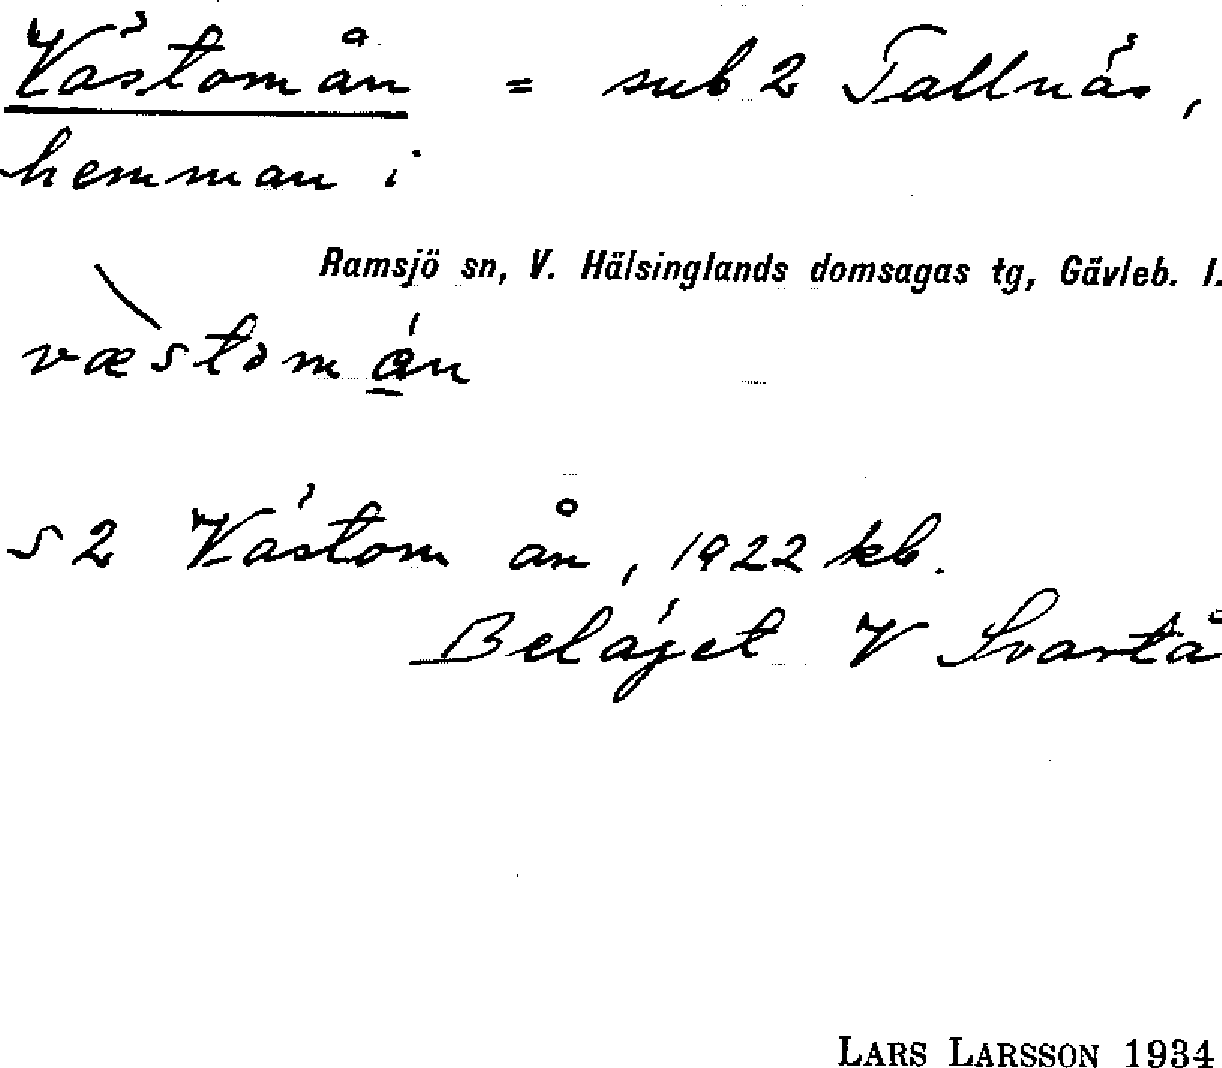 Västomån = sub 2 Tallnäs,
hemman i
Ramsjö sn, V. Hälsinglands domsagas tg, Gävleb. l.
væ̀stomán
s 2 Västom ån, 1922 kb.
Beläget V Svartå
LARS LARSSON 1934